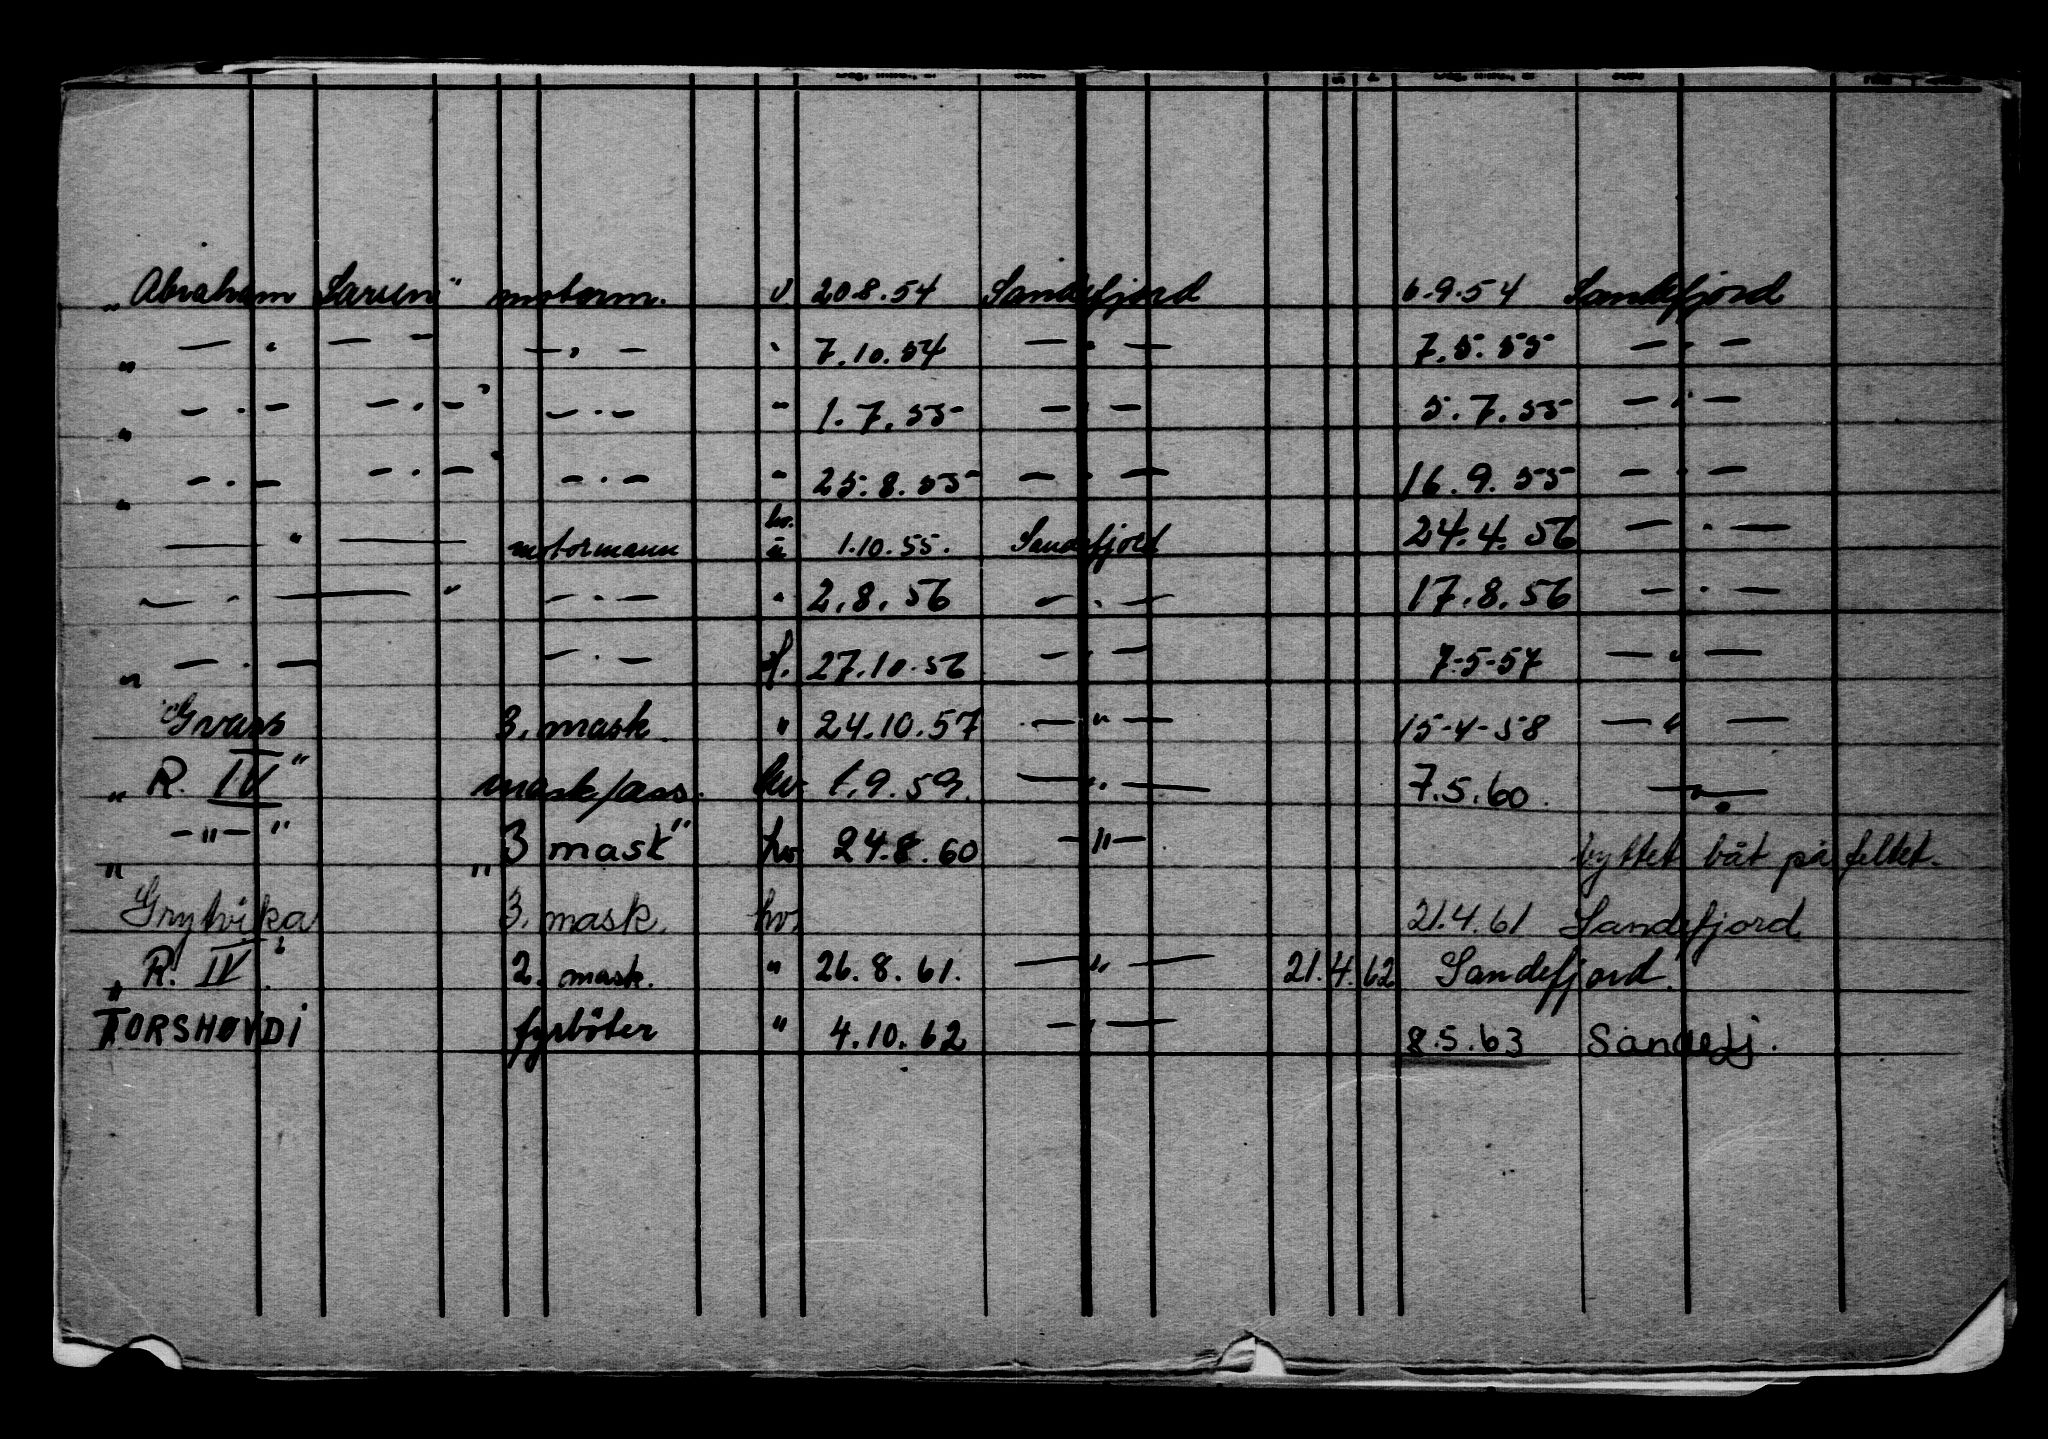 „Abraham Larsen" motorm. v 20.8.54 Sandefjord 6.9.54 Sandefjord
„ — " — — — " — " 7.10.54 — " — 7.5.55 — " —
„ — " — — " — " — " — " 1.7.55 — " — 5.7.55 — " —
„ — " — — " — " — " — " 25.8.55 — " — 16.9.55 — " —
— " — motormann hv. " 1.10.55. Sandefjord 24.4.56 — " —
— " — " — " — " 2.8.56 — " — 17.8.56 — " —
„ — " — — " — f. 27.10.56 — " — 7-5-57 — " —
"Gvass 3. mask. " 24.10.57 — " — 15-4-58 — " —
„ R. IV" mask/ass. hv 1.9.59. — " — 7.5.60. — " —
„ — " — " „3 mask" hv 24.8.60 — " — byttet båt på feltet.
Grytvika 3. mask. hv. 21.4.61 Sandefjord
„ R. IV" 2. mask. " 26.8.61. — " — 21.4.62 Sandefjord.
TORSHØVDI fyrböter " 4.10.62 — " — 8.5.63 Sandefj.